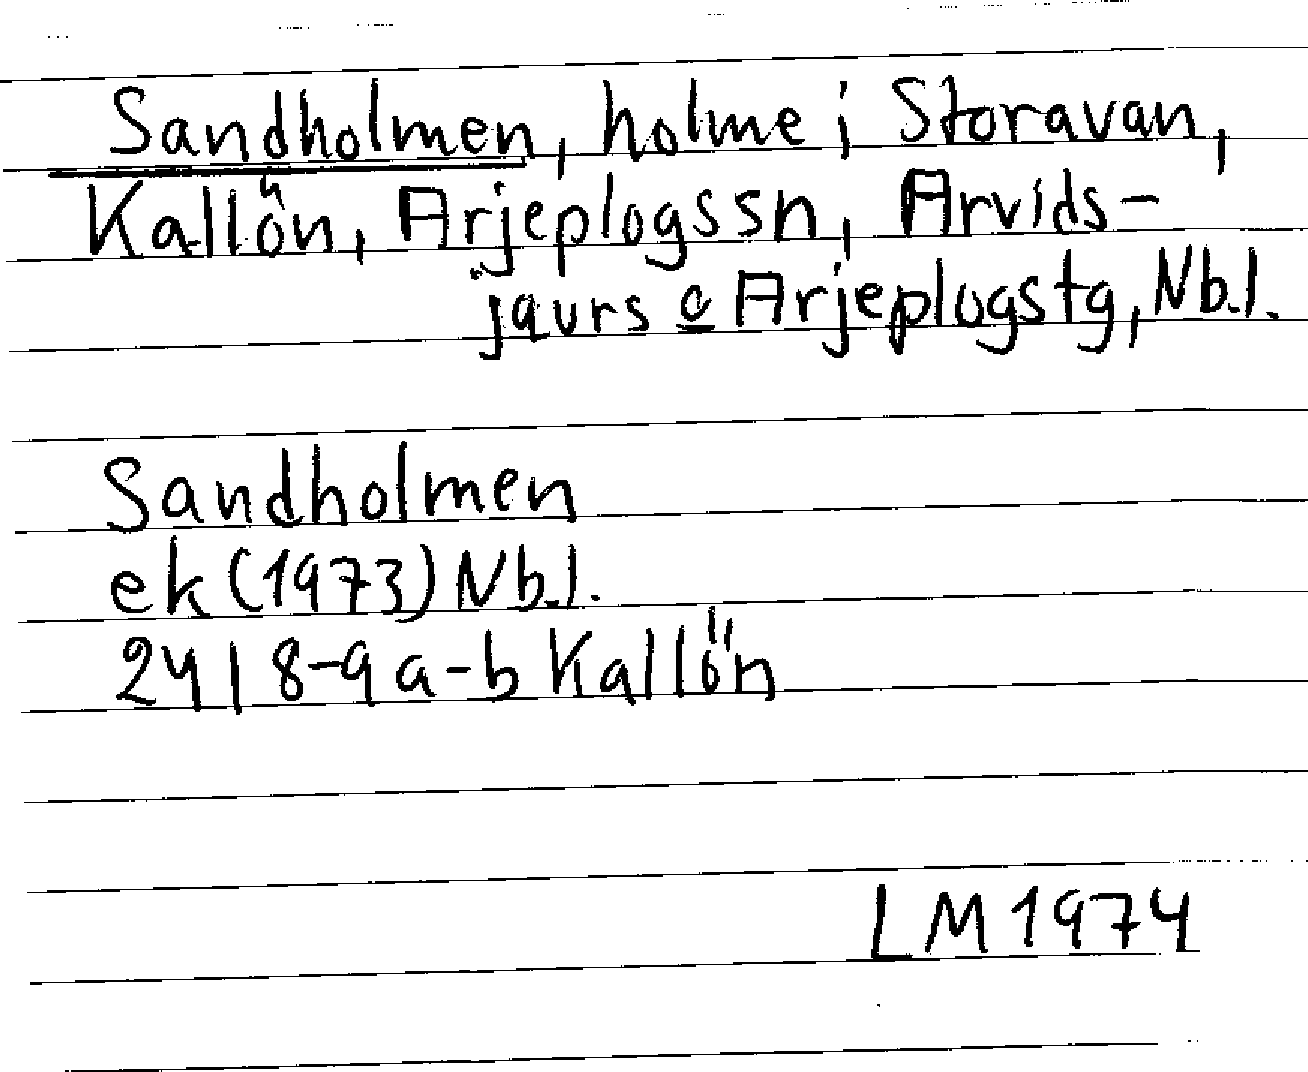 Sandholmen, holme i Storavan,
Kallön, Arjeplogssn, Arvids-
jaurs o Arjeplogstg, Nb.l.
Sandholmen
ek (1973) Nb.l.
24 I 8-9 a-b Kallön
LM 1974